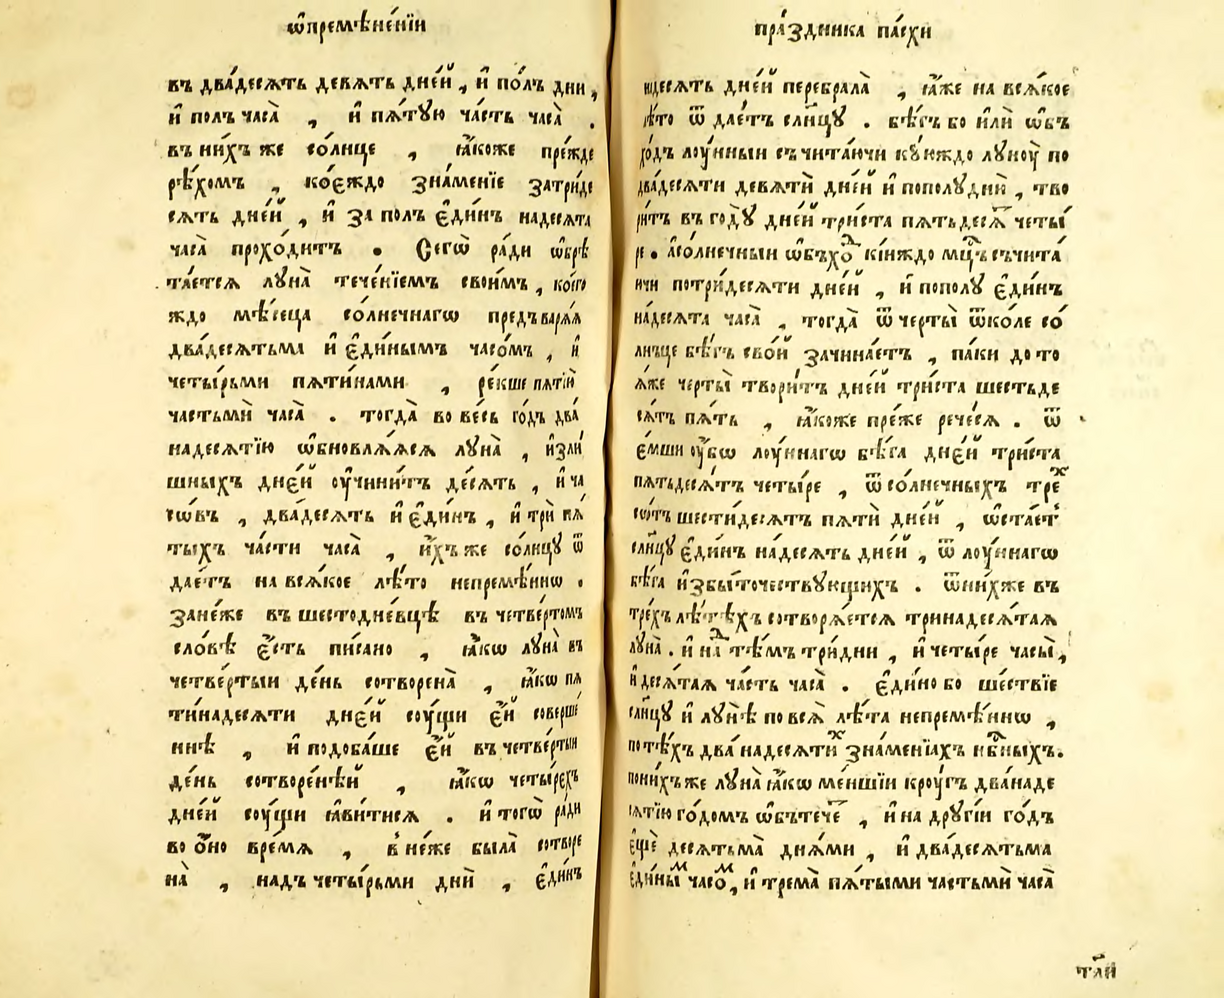 ѡ҆премѣне́нїи
въ два́десѧть девѧть дне́й , и҆ по́лъ дни ,
и҆ полъ часа̀ , и҆ пѧ́тꙋю ча́сть часа̀ .
въ ни́хъ же со́лнце , ꙗ҆́коже пре́жде
рѣ́хомъ , ко́еждо зна́менїе затри́де
сѧть дне́й , и҆ за полъ є҆ди́нъ надесѧта
часа̀ прохо́дитъ . Сегѡ̀ ра́ди ѡ҆брѣ
та́етсѧ лꙋна̀ тече́нїемъ свои́мъ , коего
ждо мѣ́сеца со́лнечнагѡ предъварѧ́ѧ
два́десѧтьма и҆ є҆ди́нымъ часо́мъ , и҆
четы́рьми пѧти́нами , ре́кше пѧтїю̀
частьмѝ часа̀ . тогда̀ во ве́сь го́дъ два́
надесѧтїю ѡ҆бновлѧ́ѧсѧ лꙋна̀ , и҆зли́
шныхъ дне́й оу҆чини́тъ де́сѧть , и҆ ча
со́въ , два́десѧть и҆ є҆ди́нъ , и҆ трѝ пѧ́
тыхъ ча́сти часа̀ , и҆́хъ же со́лнцꙋ ѿ
дае́тъ на всѧ́кое лѣ́то непремѣ́ннѡ .
зане́же въ шестодне́вцѣ въ четве́ртомъ
сло́вѣ є҆́сть пи́сано , ꙗ҆́кѡ лꙋна̀ въ
четве́ртыи де́нь сотворена̀ , ꙗ҆́кѡ пѧ
ти́надесѧти дне́й соу́щи є҆́й соверше́
ннѣ , и҆ подоба́ше є҆́й въ четве́ртыи
де́нь сотворе́нѣй , ꙗ҆́кѡ четы́рехъ
дне́й соу́щи ꙗ҆ви́тисѧ . и҆ тогѡ̀ ра́ди
во ѻ҆́но вре́мѧ , в не́же была̀ сотворе
на̀ , надъ четы́рьми днѝ , є҆ди́нъ
пра́здника па́схи
надесѧть дне́й перебрала̀ , ꙗ҆́же на всѧ́кое
лѣ́то ѿ дае́тъ сл҃нцꙋ . бѣ́гъ бо и҆лѝ ѡ҆бъ
хо́дъ лоу́нныи съчита́ючи кꙋ́юждо лꙋноу̀ по
два́десѧти девѧтѝ дне́й и҆ пополꙋднѝ , тво
ри́тъ въ го́дꙋ дне́й три́ста пѧтьдесѧ́т четы́
ре . а҆со́лнечныи ѡ҆бъхо́д кі́иждо мц҃ъ съчита́
ючи потри́десѧти дне́й , и҆ пополꙋ є҆ди́нъ
на́десѧта часа̀ , тогда̀ ѿ черты̀ ѿко́ле со́
лнъце бѣ́гъ сво́й зачина́етъ , па́ки до то
ѧ́же черты̀ твори́тъ дне́й три́ста шестьде
сѧ́тъ пѧ́ть , ꙗ҆́коже пре́же рече́сѧ . ѿ
е́мши оу҆́бѡ лоу́ннагѡ бѣ́га дне́й три́ста
пѧтьдесѧ́тъ четы́ре , ѿ со́лнечныхъ тре́х
со́тъ шести́десѧтъ пѧтѝ дне́й , ѡ҆стае́т
сл҃нцꙋ є҆ди́нъ на́десѧть дне́й , ѿ лоу́ннагѡ
бѣ́га и҆збы́точествꙋющихъ . ѿни́хже въ
тре́хъ лѣ́тѣхъ сотворѧ́етсѧ трина́десѧтаѧ
лꙋна̀ . и҆ над тѣ́мъ три́дни , и҆ четы́ре часы̀ ,
и҆ десѧ́таѧ ча́сть часа̀ . є҆ди́но бо ше́ствїе
сл҃нцꙋ и҆ лꙋнѣ̀ по всѧ̀ лѣ́та непремѣ́ннѡ ,
по тѣ́хъ два́ надесѧти́х зна́менїахъ нб҃ныхъ .
пони́хъже лꙋна̀ ꙗ҆́кѡ ме́ншїи кроу́гъ два́наде
сѧтїю го́домъ ѡ҆бътече́т , и҆ на дрꙋгі́и го́дъ
є҆щѐ десѧтьма̀ дня́ми , и҆ два́десѧтьма
є҆ди́ным часо́м , и҆ трема̀ пѧ́тыми частьмѝ часа̀
та́й